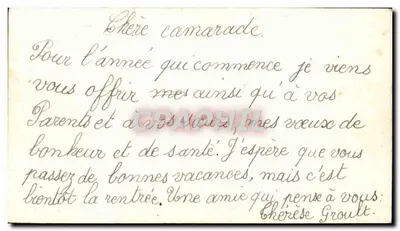 Chère camarade.
Pour l'année qui commence je viens
vous offrir mes ainsi qu'à vos
Parents et à vos mes vœux de
bonheur et de santé. J'espère que vous
passez de bonnes vacances, mais c'est
bientôt la rentrée. Une amie qui pense à vous:
Thérèse Groult.